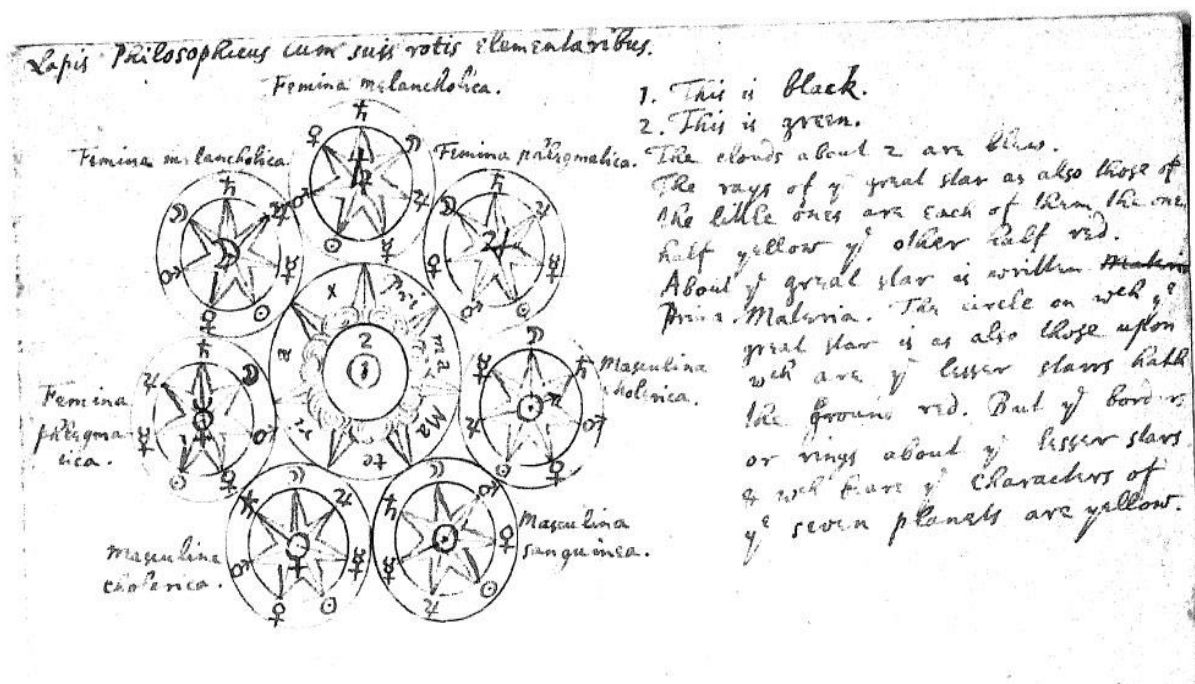 Lapis Philosophicus cum suis rotis elementaribus.
Femina melancholica.
Femina melancholica
Femina phlegmatica.
Femina
phlegma
tica.
Masculina
cholerica.
Masculina
cholerica.
Masculina
sanguinea.
Pri
ma
Ma
te
ri
a
x
2
1
1. This is black.
2. This is green.
The clouds about 2 are blew.
The rays of yᵉ great star as also those of
the little ones are each of them the one
half yellow yᵉ other half red.
About yᵉ great star is written Materia
Prima Materia. The circle on wᶜʰ yᵉ
great star is as also those upon
wᶜʰ are yᵉ lesser starrs hath
the ground red. But yᵉ borders
or rings about yᵉ lesser stars
& wᶜʰ beare yᵉ characters of
yᵉ seven planets are yellow.